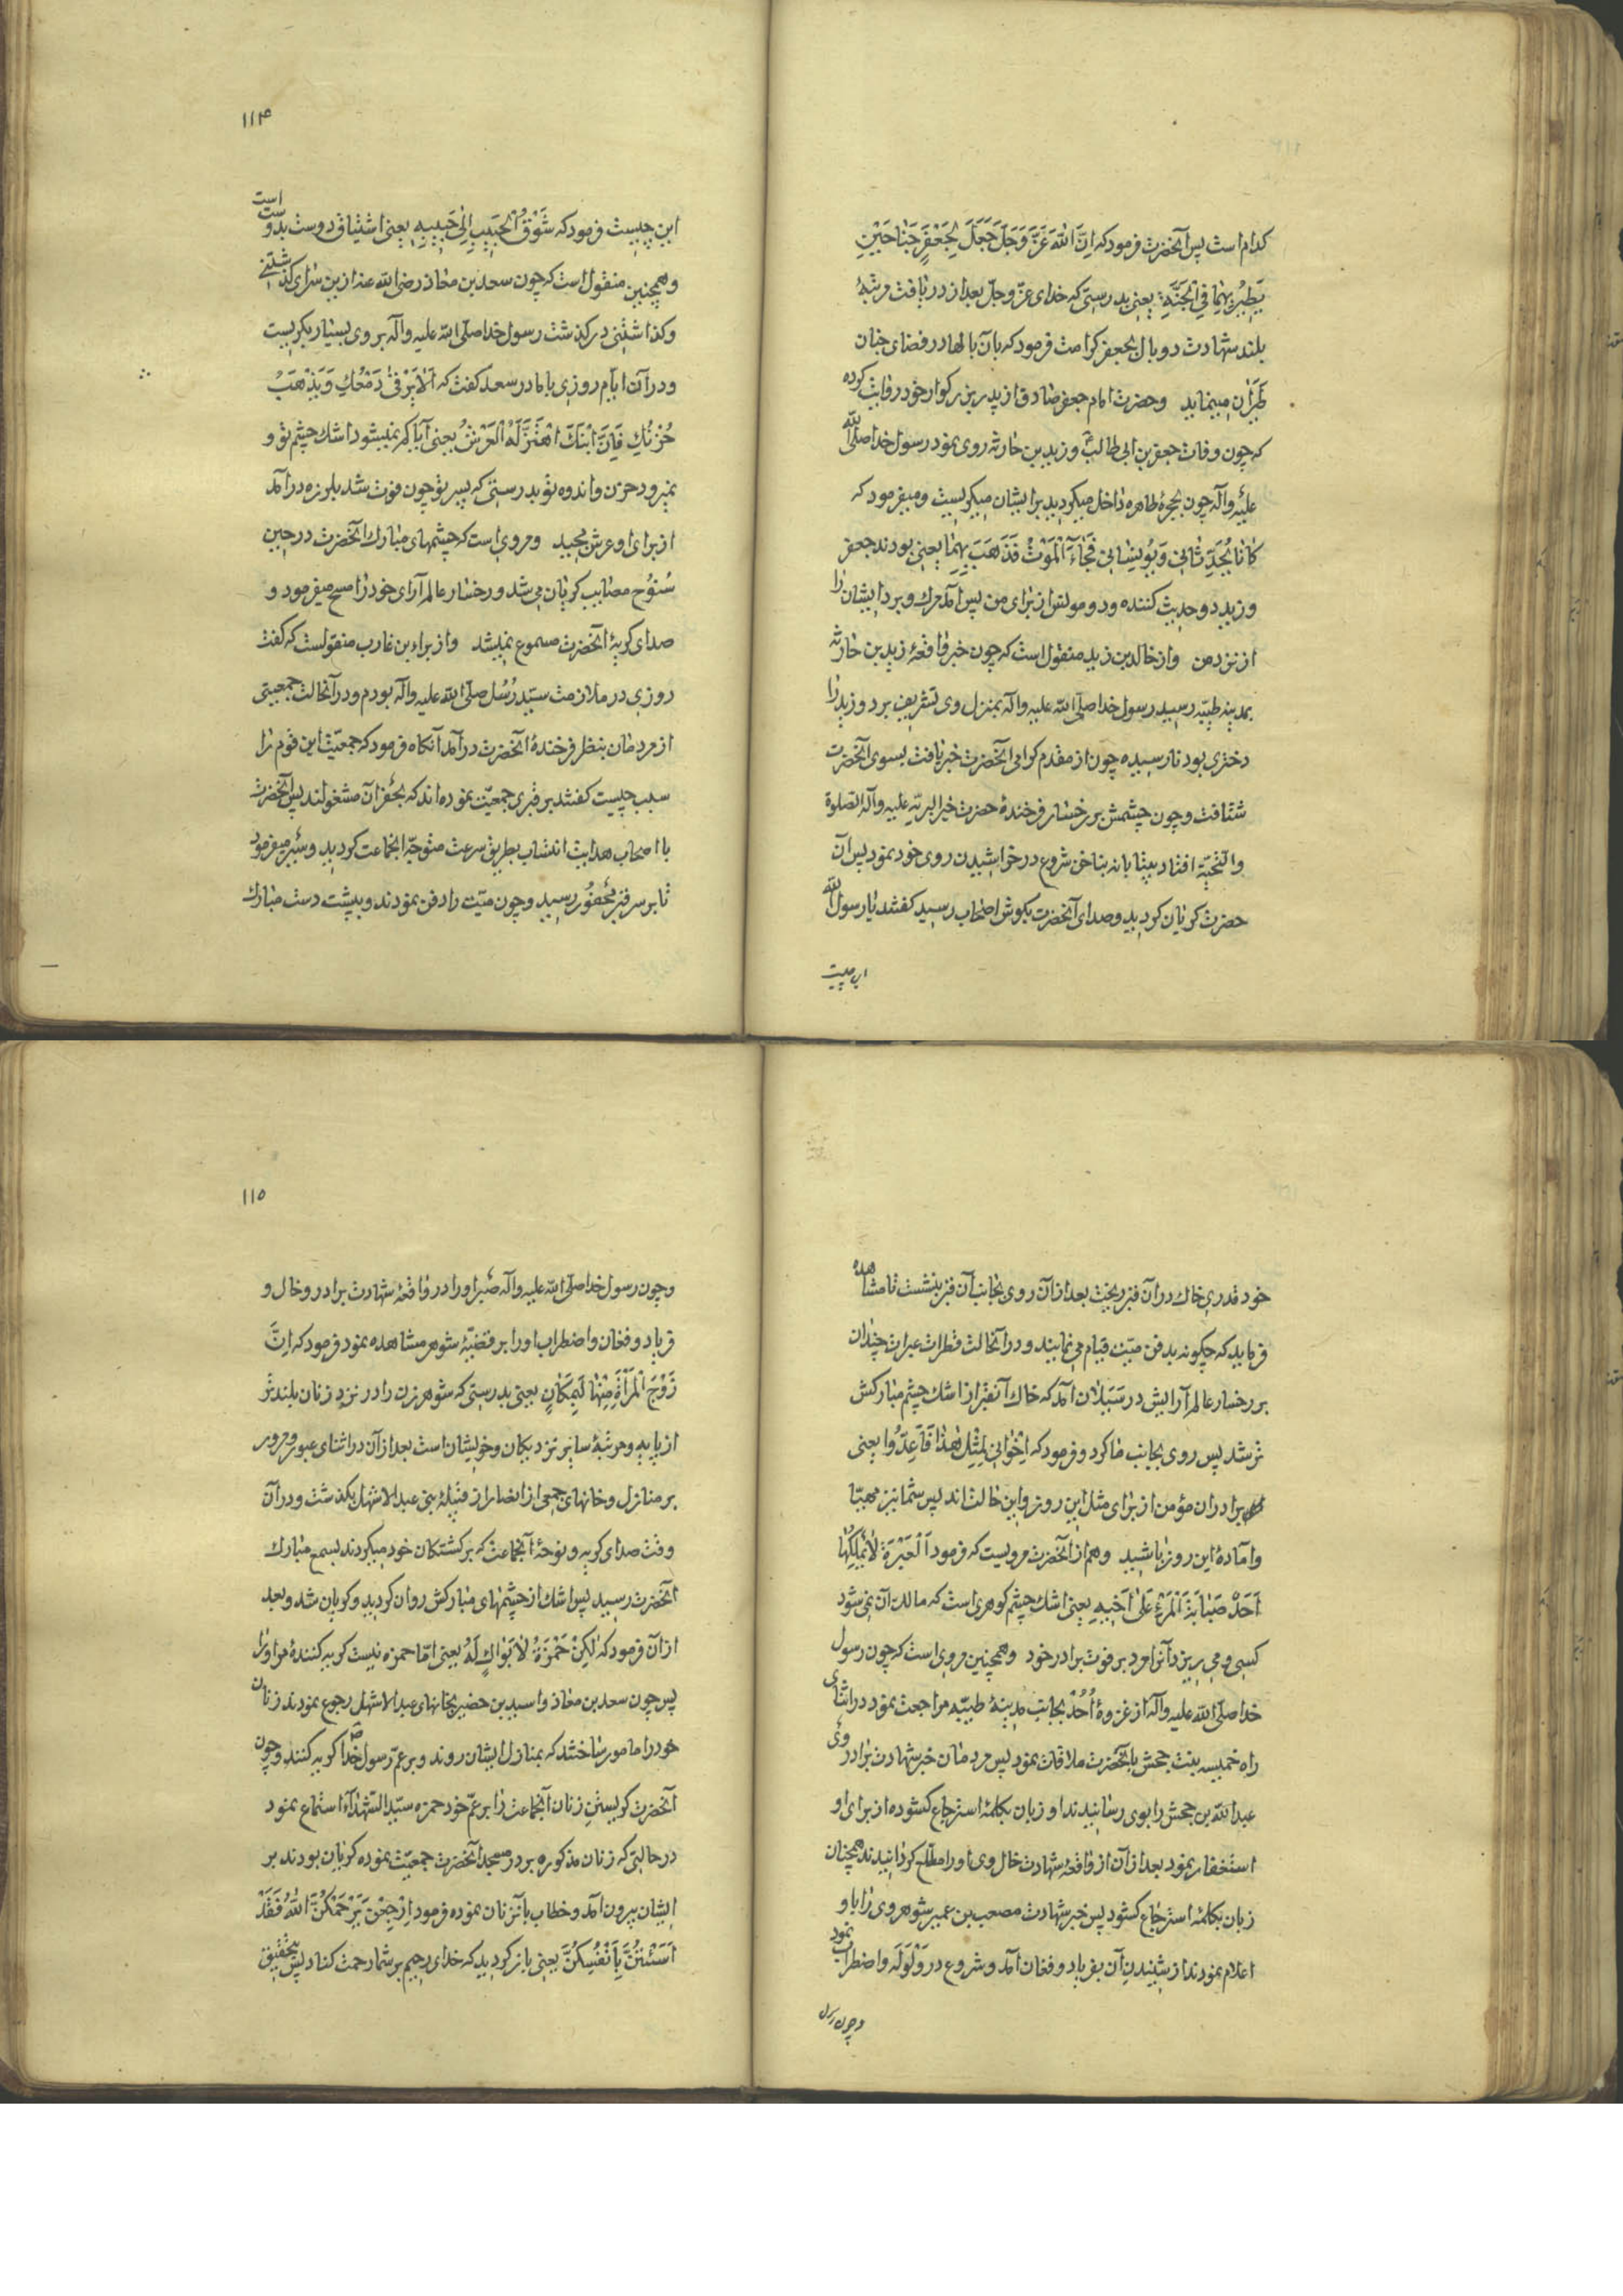 کدام است پس آنحضرت فرمود که اِنَّ اللهَ عَزَّ وَجَلَّ جَعَلَ لِجَعْفَرٍ جَنٰاحَیْنِ
یَطیرُ بِهِمٰا فِی الْجَنَّةِ یعنی بدرستی که خدای عزّ وجلّ بعد از دریافت مرتبهٔ
بلند شهادت دو بال بجعفر کرامت فرمود که بآن بالها در فضای جنان
طَیَران مینماید وحضرت امام جعفر صادق از پدر بزرکوار خود روایت کرده
که چون وفات جعفر بن ابی طالب و زید بن حارثه روی نمود رسول خدا صلی الله
علیه وآله چون بحجرهٔ طاهره داخل میکردید بر ایشان میکریست ومیفرمود که
کٰانٰا یُحَدِّثٰانی وَیُونِسٰانی فَجٰاءَ الْمَوْتُ فَذَهَبَ بِهِمٰا یعنی بودند جعفر
و زید دو حدیث کننده ودو مونس از برای من پس آمد مرك وبرد ایشان را
از نزد من واز خالد بن زید منقول است که چون خبر واقعهٔ زید بن حارثه
بمدینه طیّبه رسید رسول خدا صلی الله علیه وآله بمنزل وی تشریف برد وزید را
دختری بود نارسیده چون از مقدم کرامی آنحضرت خبر یافت بسوی آنحضرت
شتافت وچون چشمش بر رخسار فرخندهٔ حضرت خیر البریّه علیه وآله الصلوة
والتحیّه افتاد بیتابانه بناخن شروع در خراشیدن روی خود نمود پس آن
حضرت کریان کردید وصدای آنحضرت بکوش اصحاب رسید کفتند یا رسول الله
این چیست
۱۱۴
این چیست فرمود که شَوْقُ الْحَبیبِ اِلٰی حَبیبِهِ یعنی اشتیاق دوست بدوست است
وهمچنین منقول است که چون سعد بن معاذ رضی الله عنه ازین سرای کذشتنی
وکذاشتنی درکذشت رسول خدا صلی الله علیه وآله بر وی بسیار بکریست
ودر آن ایّام روزی با مادر سعد کفت که اَلٰا یَرْقیٰ دَمْعُكِ وَیَذْهَبُ
حُزْنُكِ فَاِنَّ ابْنَكِ اهْتَزَّ لَهُ الْعَرْشُ یعنی آیا کم نمیشود اشك چشم تو و
نمیرود حزن واندوه تو بدرستی که پسر تو چون فوت شد بلرزه درآمد
از برای او عرش مجید ومروی است که چشمهای مبارك آنحضرت در حین
سُنوُح مصایب کریان می شد ورخسار عالم آرای خود را مسح میفرمود و
صدای کریهٔ آنحضرت مسموع نمیشد واز براء بن عازب منقولست که کفت
روزی در ملازمت سیّد رُسُل صلی الله علیه وآله بودم ودر آنحالت جمعیتی
از مردمان بنظر فرخندهٔ آنحضرت درآمد آنکاه فرمود که جمعیّت این قوم را
سبب چیست کفتند بر قبری جمعیّت نموده اند که بحَفْر آن مشغولند پس آنحضرت
با اصحاب هدایت انتساب بطریق سرعت متوجّه آنجماعت کردید وسَیْر میفرمود
تا بر سر قبر محفوُر رسید وچون میّت را دفن نمودند وبپشت دست مبارك
خود قدری خاك در آن قبر ریخت بعد از آن روی بجانب آن قبر بنشست تا مشاهده
فرماید که چکونه بدفن میّت قیام می نمایند ودر آنحالت قطرات عبرات چندان
بر رخسار عالم آرایش در سَیَلان آمد که خاك آنقبر از اشك چشم مبارکش
تر شد پس روی بجانب ما کرد وفرمود که اِخْوانی لِمِثْلِ هٰذٰا فَاَعِدُّوا یعنی
برادران مؤمن از برای مثل این روز واین حالت اند پس شما نیز مهیّا
وآمادهٔ این روز باشید وهم از آنحضرت مرویست که فرمود اَلْعَبْرَةُ لٰا یَمْلِکُهٰا
اَحَدٌ صَبٰابَةُ الْمَرْءِ عَلیٰ اَخیهِ یعنی اشك چشم کوهری است که مالك آن نمی شود
کسی ومی ریزد آنرا مرد بر فوت برادر خود وهمچنین مروی است که چون رسول
خدا صلی الله علیه وآله از غزوهٔ اُحُدْ بجانب مدینهٔ طیّبه مراجعت نمود در اثنای
راه خمیسه بنت جحش با آنحضرت ملاقات نمود پس مردمان خبر شهادت برادر وی
عبدالله بن جحش را بوی رسانیدند او زبان بکلمهٔ استرجاع کشوده از برای او
استغفار نمود بعد از آن از واقعهٔ شهادت خال وی او را مطّلع کردانیدند همچنان
زبان بکلمهٔ استرجاع کشود پس خبر شهادت مصعب بن عمیر شوهر وی را با او
اعلام نمودند از شنیدن آن بفریاد وفغان آمد وشروع در وَلْوَلَه واضطراب نمود
وچون رسول
۱۱۵
وچون رسول خدا صلی الله علیه وآله صبر او را در واقعهٔ شهادت برادر وخال و
فریاد وفغان واضطراب او را بر قضیّهٔ شوهر مشاهده نمود فرمود که اِنَّ
زَوْجَ الْمَرْأَةِ مِنْهٰا لَبِمَکٰانٍ یعنی بدرستی که شوهر زن را در نزد زنان بلندتر
از پایه ومرتبهٔ سایر نزدیکان وخویشان است بعد از آن در اثنای عبور ومرور
بر منازل وخانهای جمعی از انصار از قبیلهٔ بنی عبدالاشهل بکذشت ودر آن
وقت صدای کریه ونوحهٔ آنجماعت که بر کشتکان خود میکردند بسمع مبارك
آنحضرت رسید پس اشك از چشمهای مبارکش روان کردید وکریان شد وبعد
از آن فرمود که لٰکِنْ حَمْزَةُ لٰا بَوٰاکِ لَهُ یعنی امّا حمزه نیست کریه کنندهٔ مر او را
پس چون سعد بن معاذ واسید بن حضیر بخانهای عبدالاشهل رجوع نمودند زنان
خود را مامور ساختند که بمنازل ایشان روند وبر عمّ رسول خدا ص کریه کنند وچون
آنحضرت کریستن زنان آنجماعت را بر عمّ خود حمزه سیّد الشهدٰاء استماع نمود
در حالتی که زنان مذکوره بر در مسجد آنحضرت جمعیّت نموده کریان بودند بر
ایشان بیرون آمد وخطاب بآنزنان نموده فرمود اِرْجِعْنَ یَرْحَمْکُنَّ اللهُ فَقَدْ
آسَیْتُنَّ بِاَنْفُسِکُنَّ یعنی باز کردید که خدای رحیم بر شما رحمت کناد پس بتحقیق